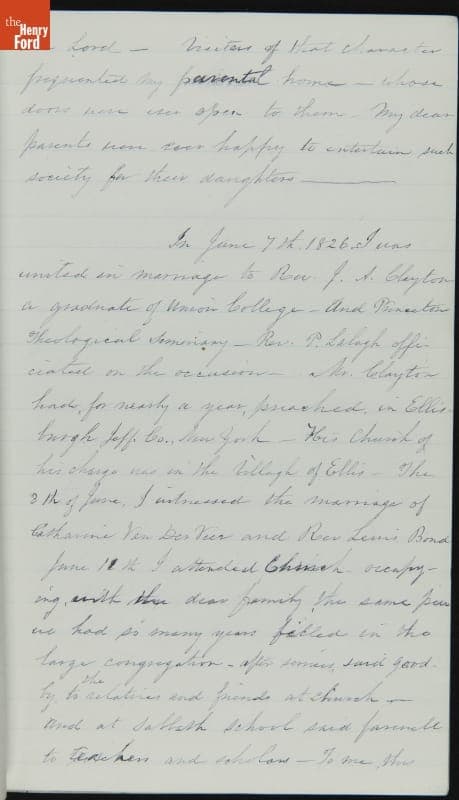 the
Henry
Ford
Lord — Visiters of that character
frequented my parental home — whose
doors were ever open to them — My dear
parents were ever happy to entertain such
society for their daughters —
In June 7th, 1826, I was
united in marriage to Rev. J. A. Clayton
a graduate of Union College — And Princeton
Theological Seminary — Rev. P. Labagh offi-
ciated on the occasion — Mr. Clayton
had, for nearly a year, preached, in Ellis-
burgh Jeff. Co., New York — His Church of
his charge was in the Villagh of Ellis — The
8th of June, I witnessed the marriage of
Catharine Van Der Veer and Rev Lewis Bond
June 11th I attended Church occupy-
ing, with the dear family, the same pew
we had so many years filled in the
large congregation — after service, said good-
by, to the relatives and friends at church —
And at Sabbath School said farewell
to teachers and scholars — To me, this